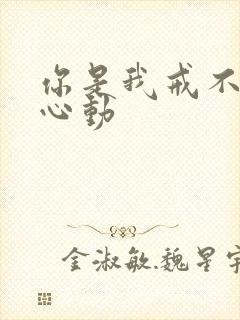 你是我戒不
心動
金淑敏.魏星宇